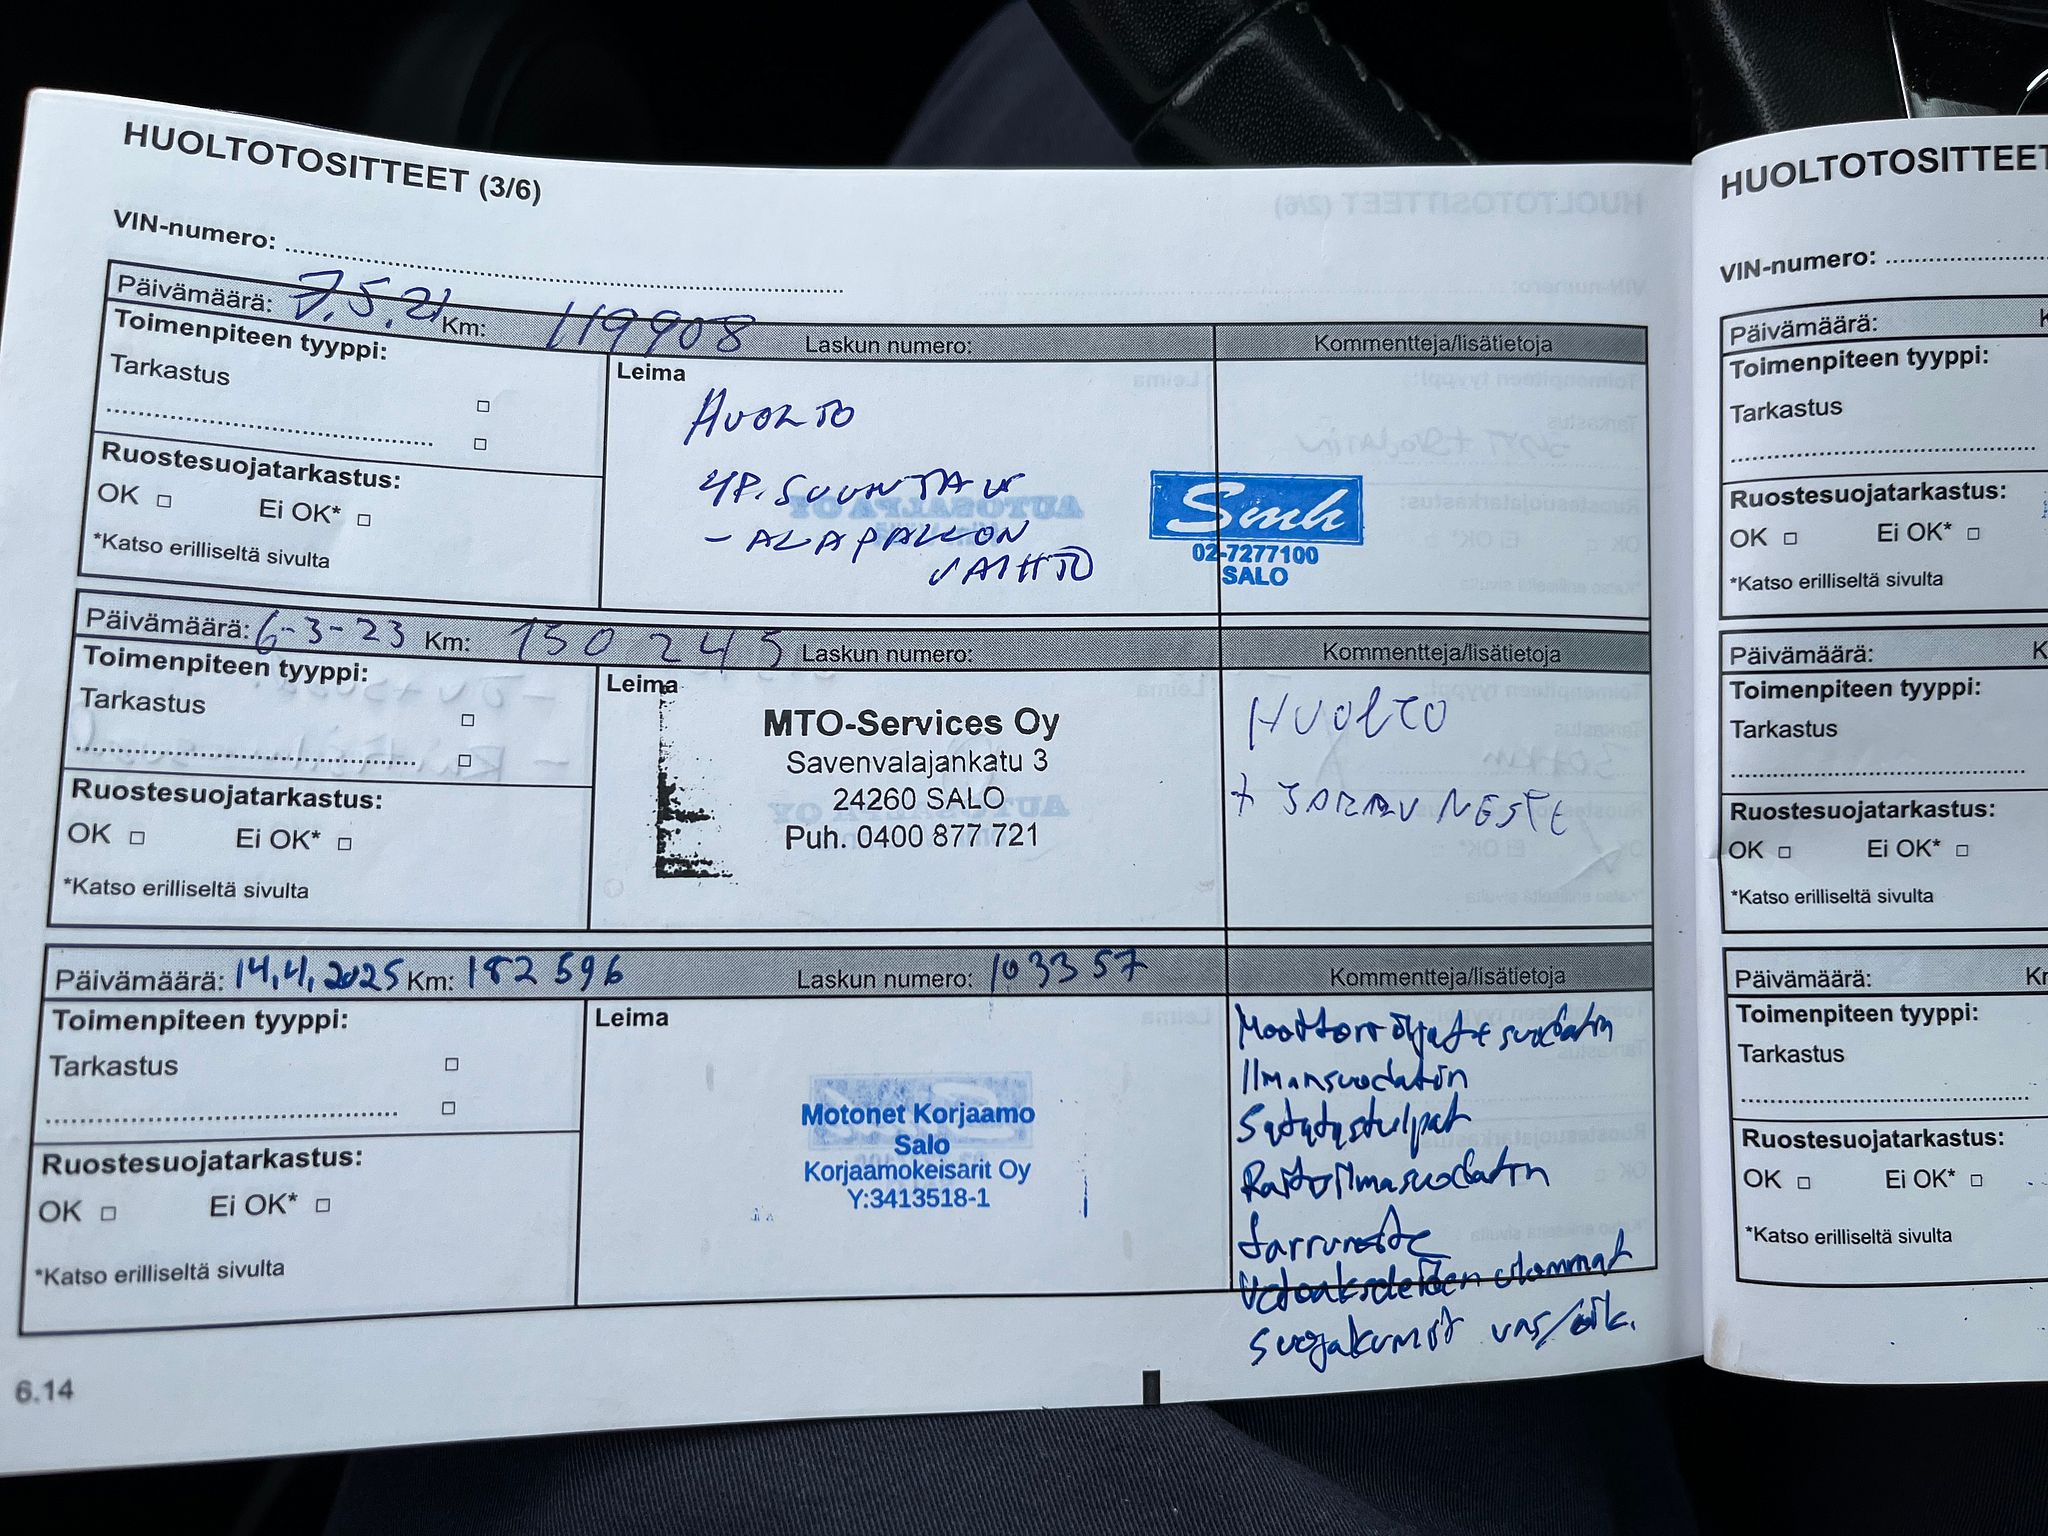 HUOLTOTOSITTEET (3/6)
VIN-numero:
Päivämäärä: 7.5.21 Km: 119908 Laskun numero: Kommentteja/lisätietoja
Toimenpiteen tyyppi:
Tarkastus
Ruostesuojatarkastus:
OK Ei OK*
*Katso erilliseltä sivulta
Leima
HUOLTO
4P. SUUNTAUS
- ALAPALLON
VAIHTO
Smh
02-7277100
SALO
Päivämäärä: 6-3-23 Km: 150 245 Laskun numero: Kommentteja/lisätietoja
Toimenpiteen tyyppi:
Tarkastus
Ruostesuojatarkastus:
OK Ei OK*
*Katso erilliseltä sivulta
Leima
MTO-Services Oy
Savenvalajankatu 3
24260 SALO
Puh. 0400 877 721
HUOLTO
+ JARRUNESTE
Päivämäärä: 14.4.2025 Km: 182 596 Laskun numero: 103357 Kommentteja/lisätietoja
Toimenpiteen tyyppi:
Tarkastus
Ruostesuojatarkastus:
OK Ei OK*
*Katso erilliseltä sivulta
Leima
Motonet Korjaamo
Salo
Korjaamokeisarit Oy
Y:3413518-1
Moottoriöljyt + suodatin
Ilmansuodatin
Sytytystulpat
Raitisilmasuodatin
Jarruneste
Vetoakseleiden ulommat
suojakumit vas/oik.
6.14
HUOLTOTOSITTEET
VIN-numero:
Päivämäärä: K
Toimenpiteen tyyppi:
Tarkastus
Ruostesuojatarkastus:
OK Ei OK*
*Katso erilliseltä sivulta
Päivämäärä: K
Toimenpiteen tyyppi:
Tarkastus
Ruostesuojatarkastus:
OK Ei OK*
*Katso erilliseltä sivulta
Päivämäärä: Km
Toimenpiteen tyyppi:
Tarkastus
Ruostesuojatarkastus:
OK Ei OK*
*Katso erilliseltä sivulta